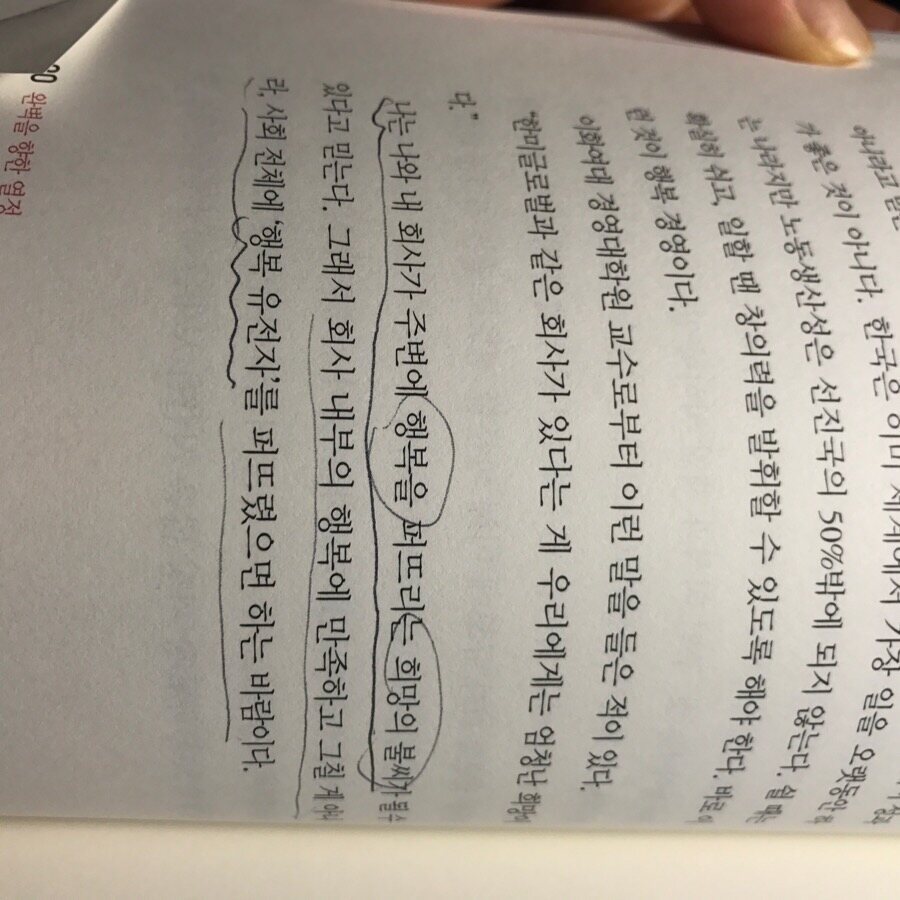 아니라고
가 좋은 것이 아니다. 한국은 이미 세계에서 가장 일을 오랫동안 하
는 나라지만 노동생산성은 선진국의 50%밖에 되지 않는다. 쉴 때는
확실히 쉬고, 일할 땐 창의력을 발휘할 수 있도록 해야 한다. 바로 이
런 것이 행복 경영이다.
이화여대 경영대학원 교수로부터 이런 말을 들은 적이 있다.
"한미글로벌과 같은 회사가 있다는 게 우리에게는 엄청난 희망이
다."
나는 나와 내 회사가 주변에 행복을 퍼뜨리는 희망의 불씨가 될 수
있다고 믿는다. 그래서 회사 내부의 행복에 만족하고 그칠 게 아니
라, 사회 전체에 '행복 유전자'를 퍼뜨렸으면 하는 바람이다.
완벽을 향한 열정